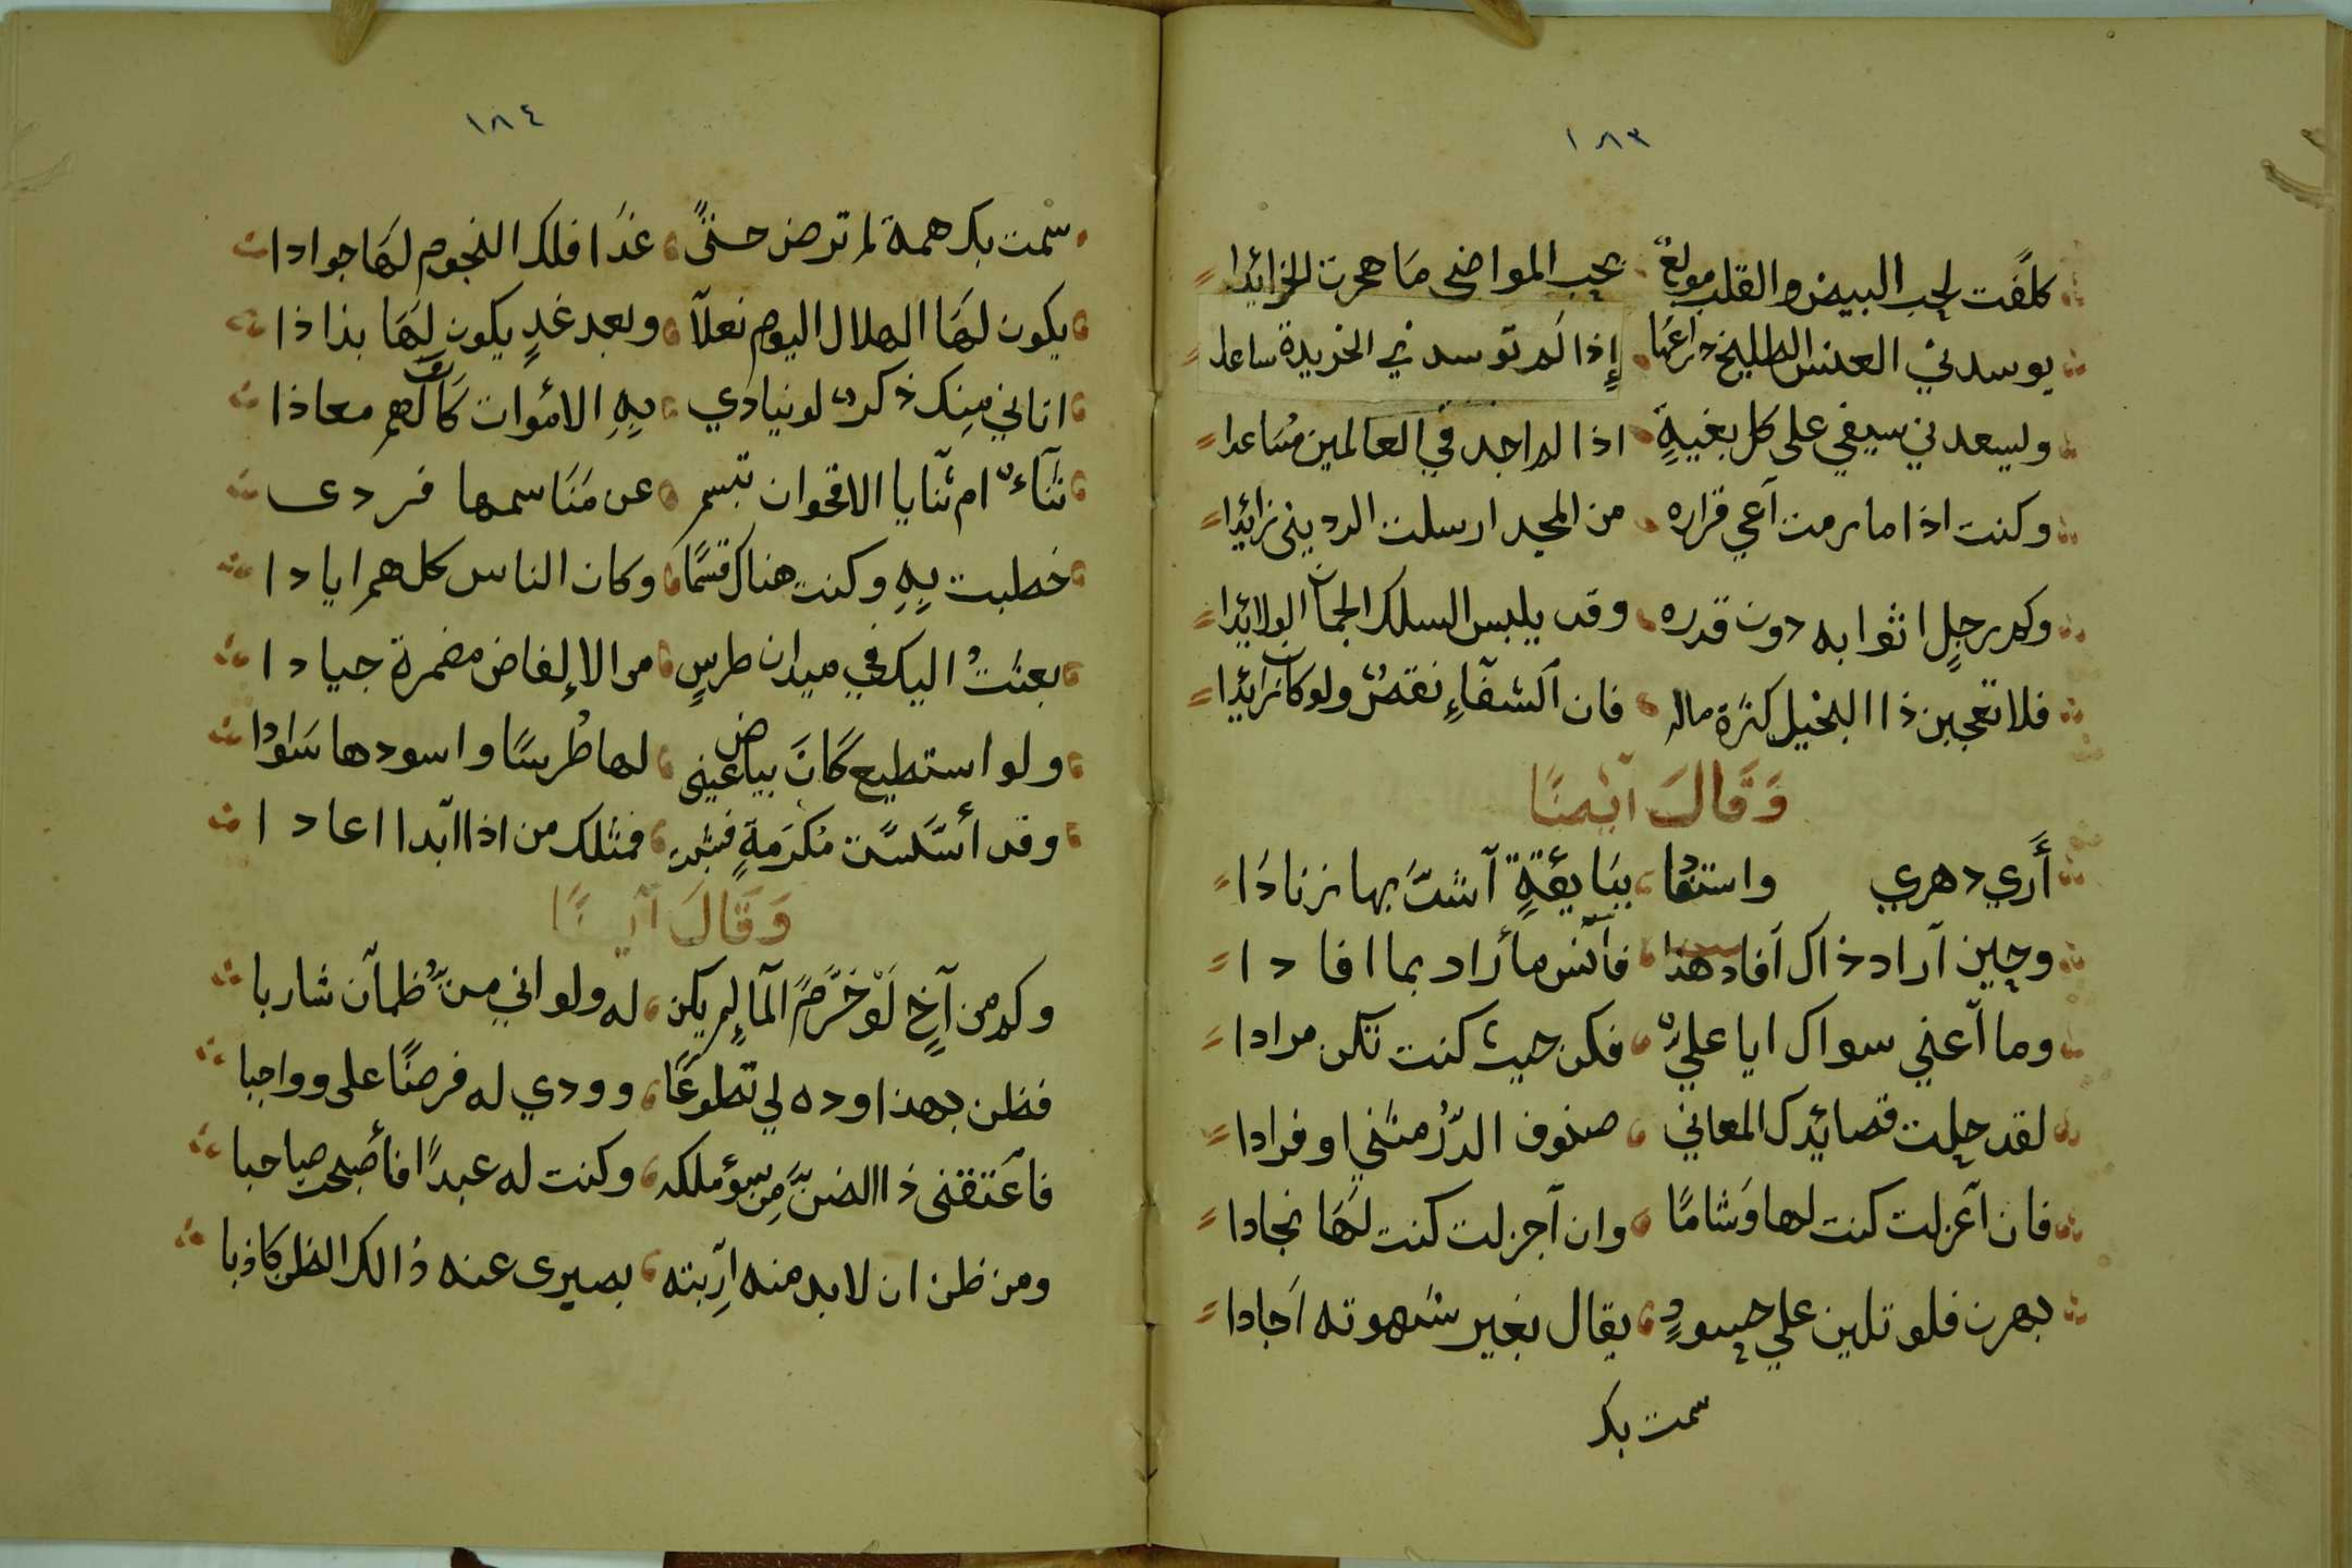 ١٨٣
كلفت لحب البيض والقلب مولع بحب المواضى ما هجرت الخرائدا
يوسدني العنس الطليح ذراعها إذا لم توسدني الخريدة ساعدا
وليسعدني سيفي على كل بغيةٍ اذا لم اجد في العالمين مساعدا
وكنت اذا ما رمت آعي قراره من المجد ارسلت الرديني زائدا
وكم رجلٍ اثوابه دون قدره وقد يلبس السلك الجمان الولائدا
فلا تعجبن ذا البخيل كثرة ماله فان الشفاء نقص ولو كان زايدا
وَقَالَ آيْضًا
أَري دهري واستفا ببايقةٍ آشتّ بها زنادَا
وحين آراد ذاك آفاد هذا فآنس ما أراد بما افادا
وما آعني سواك ايا علي فكن حيث كنت تكن مرادا
لقد حلت قصائدك المعاني صنوف الدّرُ مثني او فرادا
فان آعزلت كنت لها وَشامًا وان آجزلت كنت لهَا نجادا
بهرن فلو تلين علي حسودٍ يقال بغير شهوته اَجادا
سمت بك
١٨٤
سمت بك همة لم ترض حتىً غدَا فلك النجوم لهَا جوادا
يكون لهَا الهلال اليوم نعلاً وبعد غدٍ يكون لهَا بذاذا
اتاني مِنك ذكر لو ينادي بِهِ الاموات كَان لهم معاذا
ثنآء ام ثنايا الاقحوان تبسم عن مَنَاسمها فردى
خطبت بِهِ وكنت هناك قسمًا وكان الناس كلهم ايادا
بعثتُ اليك في ميدان طرسٍ من الالفاض مضمرة جيادا
ولو استطيع كَانَ بياض عيني لها طُرسًا واسودها سَوادا
وقد أسّسَت مُكرَمةٍ فمثلك من اذا ابدا اعادا
وَقَالَ آيضًا
وكم من آخٍ لَوْ حَرَّمً المآ لم يكن له ولو اني من ظمآن شاربا
فظن بهذا وده لي تطوعًا وودي له فرضًا على وواجبا
فاَعتقنى ذا الضنّ من سؤ ملكه وكنت له عبدًا فأصبحت صاحبا
ومن ظن ان لابد منه ارَبته بصيرى عنه ذالك الظن كاذبا